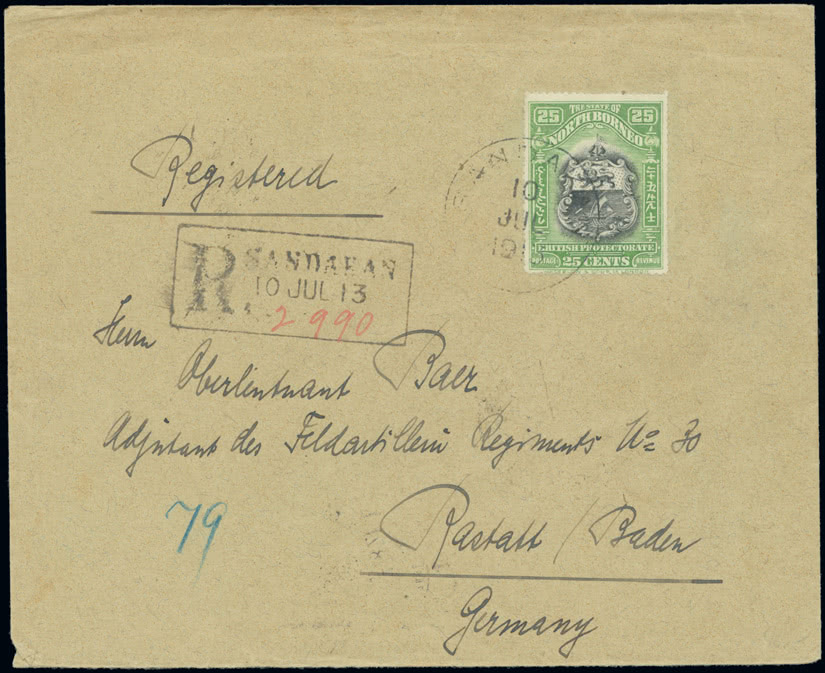 25 THE STATE OF 25
NORTH BORNEO
BRITISH PROTECTORATE
POSTAGE 25 CENTS REVENUE
10
JUL
Registered
R SANDAKAN
10 JUL 13
2990
Herrn
Oberleutnant Baer
Adjutant des Feldartillerie Regiments No 30
79
Rastatt / Baden
Germany